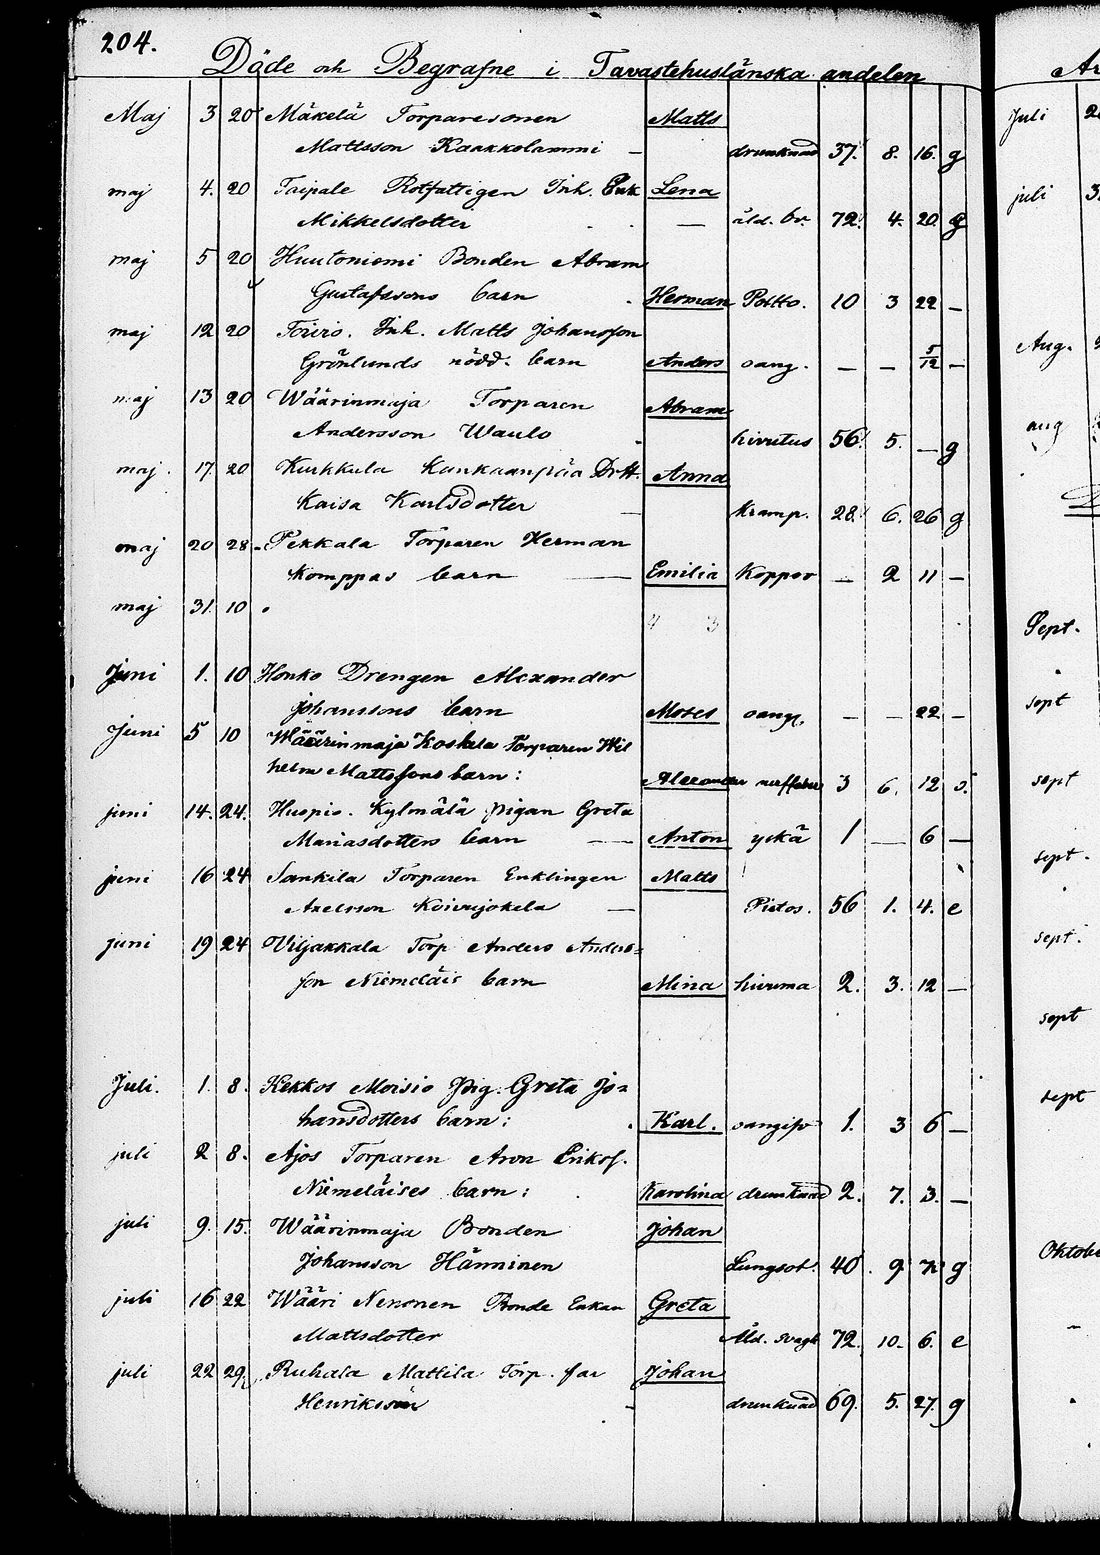 204.
Döde och Begrafne i Tavastehuslänska andelen
Maj 3 20 Mäkelä Torparesonen Matts
Mattsson Kaakkolammi — drunknad 37. 8. 16. g
maj 4. 20 Taipale Rotfattigen Inh. Enk Lena
Mikkelsdotter — åld. br. 72. 4. 20. g
maj 5 20 Huutoniemi Bonden Abram
Gustafssons barn Herman Poltto. 10 3 22 —
maj 12 20 Inh. Matts Johansson
Grönlunds nödd. barn Anders oang. — — 5/12 —
maj 13 20 Wäärinmaja Torparen Abram
Andersson Waulo 56. 5. — g
maj. 17 20 Kurkkula Kankaanpää Dott. Anna
Kaisa Karlsdotter — Kramp. 28. 6. 26 g
maj 20 28 Pekkala Torparen Herman
Komppas barn — Emilia Koppor — 2 11 —
maj 31. 10
4 3
Juni 1. 10 Honko Drengen Alexander
Johanssons barn Moses oang. — — 22 —
Juni 5 10 Wäärinmaja Koskela Torparen Wil
helm Mattssons barn: Alexander 3 6. 12 s.
juni 14. 24. Kylmälä pigan Greta
Mariasdotters barn — Anton yskä 1 — 6 —
juni 16 24 Sankila Torparen Enklingen Matts
Axelsson Koivujokela — Pistos. 56 1. 4. e
juni 19 24 Viljakkala Torp Anders Anders=
son Niemeläis barn Mina 2. 3. 12 —
Juli. 1. 8. Kekkos Moisio Pig. Greta Jo=
hansdotters barn: Karl. oangifv 1. 3 6 —
juli 2 8. Ajos Torparen Aron Eriksf.
Niemeläises barn: Karolina drunknad 2. 7. 3. —
juli 9. 15. Wäärinmaja Bonden Johan
Johansson Hänninen Lungsot. 40 9 g
juli 16 22 Wääri Nenonen Bonde Enkan Greta
Mattsdotter Åld. svagh 72. 10. 6. e
juli 22 29. Ruhala Mattila Torp. far Johan
Henriksson — drunknad 69. 5. 27. g
Juli
juli
Aug.
aug
Sept.
sept
sept
sept.
sept.
sept
sept